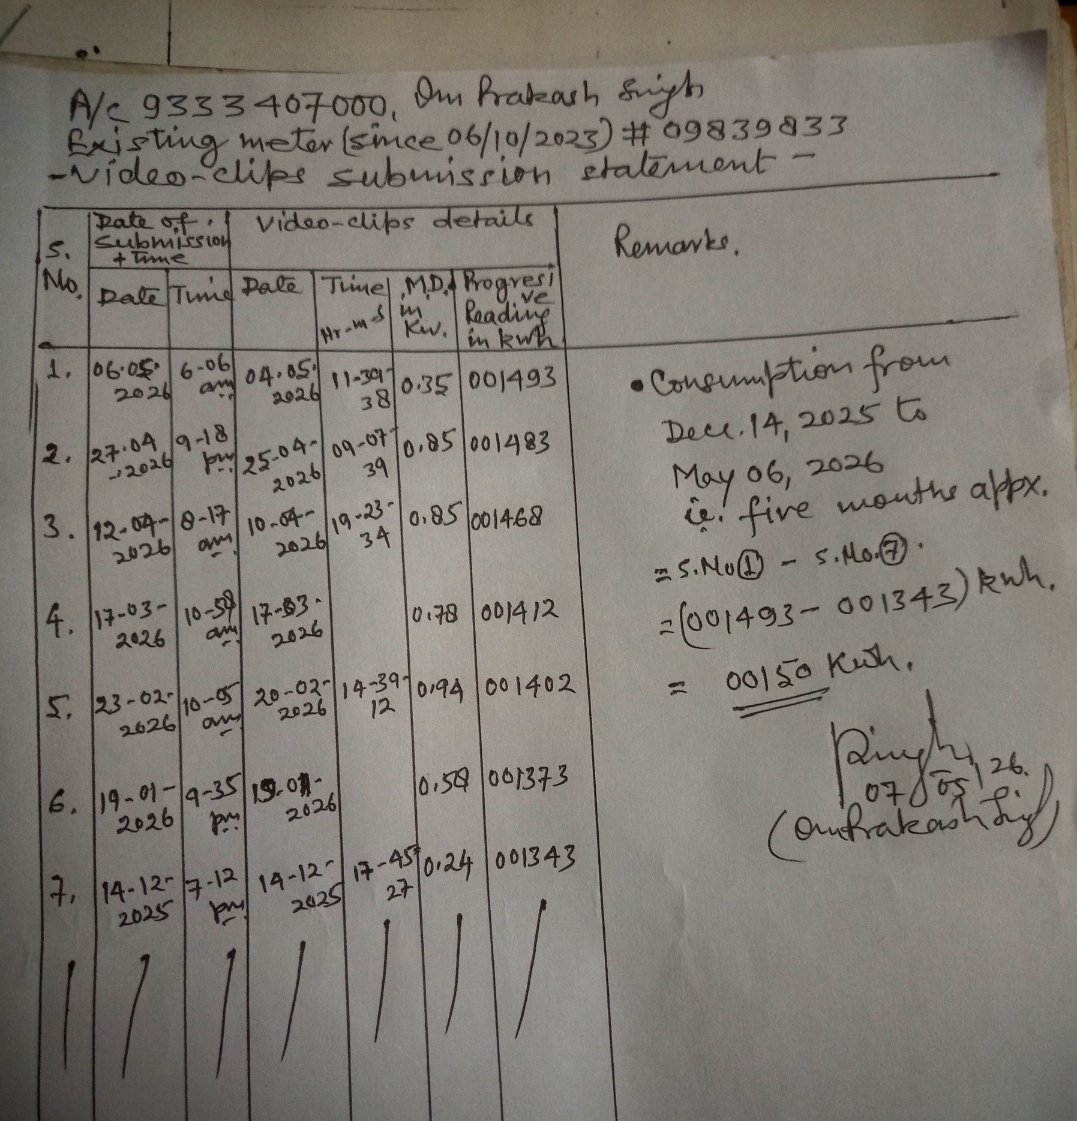 A/c 9333407000, Om Prakash Singh
Existing meter (since 06/10/2023) # 09839833
- Video-clips submission statement -
S. No.
Date of submission + Time
Video-clips details
Remarks.
Date
Time
Date
Time Hr-m-s
M.D. in Kw.
Progresive Reading in kwh
1. 06.05.2026 6-06 am 04.05.2026 11-39-38 0.35 001493
2. 27.04.2026 9-18 pm 25-04-2026 09-07-39 0.85 001483
3. 12-04-2026 8-17 am 10-04-2026 19-23-34 0.85 001468
4. 17-03-2026 10-59 am 17-03-2026 0.78 001412
5. 23-02-2026 10-05 am 20-02-2026 14-39-12 0.94 001402
6. 19-01-2026 9-35 pm 2026 001373
7. 14-12-2025 7-12 pm 14-12-2025 17-45-27 0.24 001343
• Consumption from
Dec. 14, 2025 to
May 06, 2026
ie. five months appx.
= S.No ① - S.No. ⑦.
= (001493 - 001343) kwh.
= 00150 Kwh.
07/05/26.
(Om Prakash Singh)